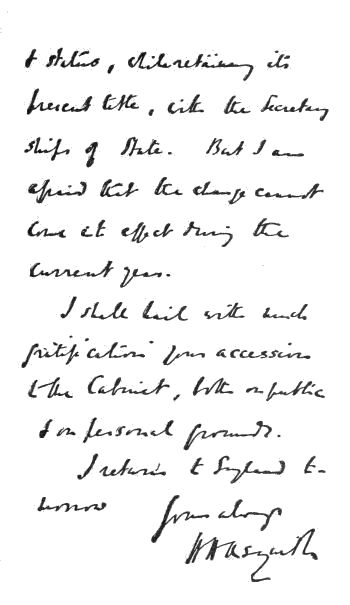 & status, while retaining its
present title, with the Secretary
ships of State. But I am
afraid that the change cannot
come into effect during the
current year.
I shall hail with much
gratification your accession
to the Cabinet, both on public
& on personal grounds.
I return to England to-
morrow
Yours always
H H Asquith